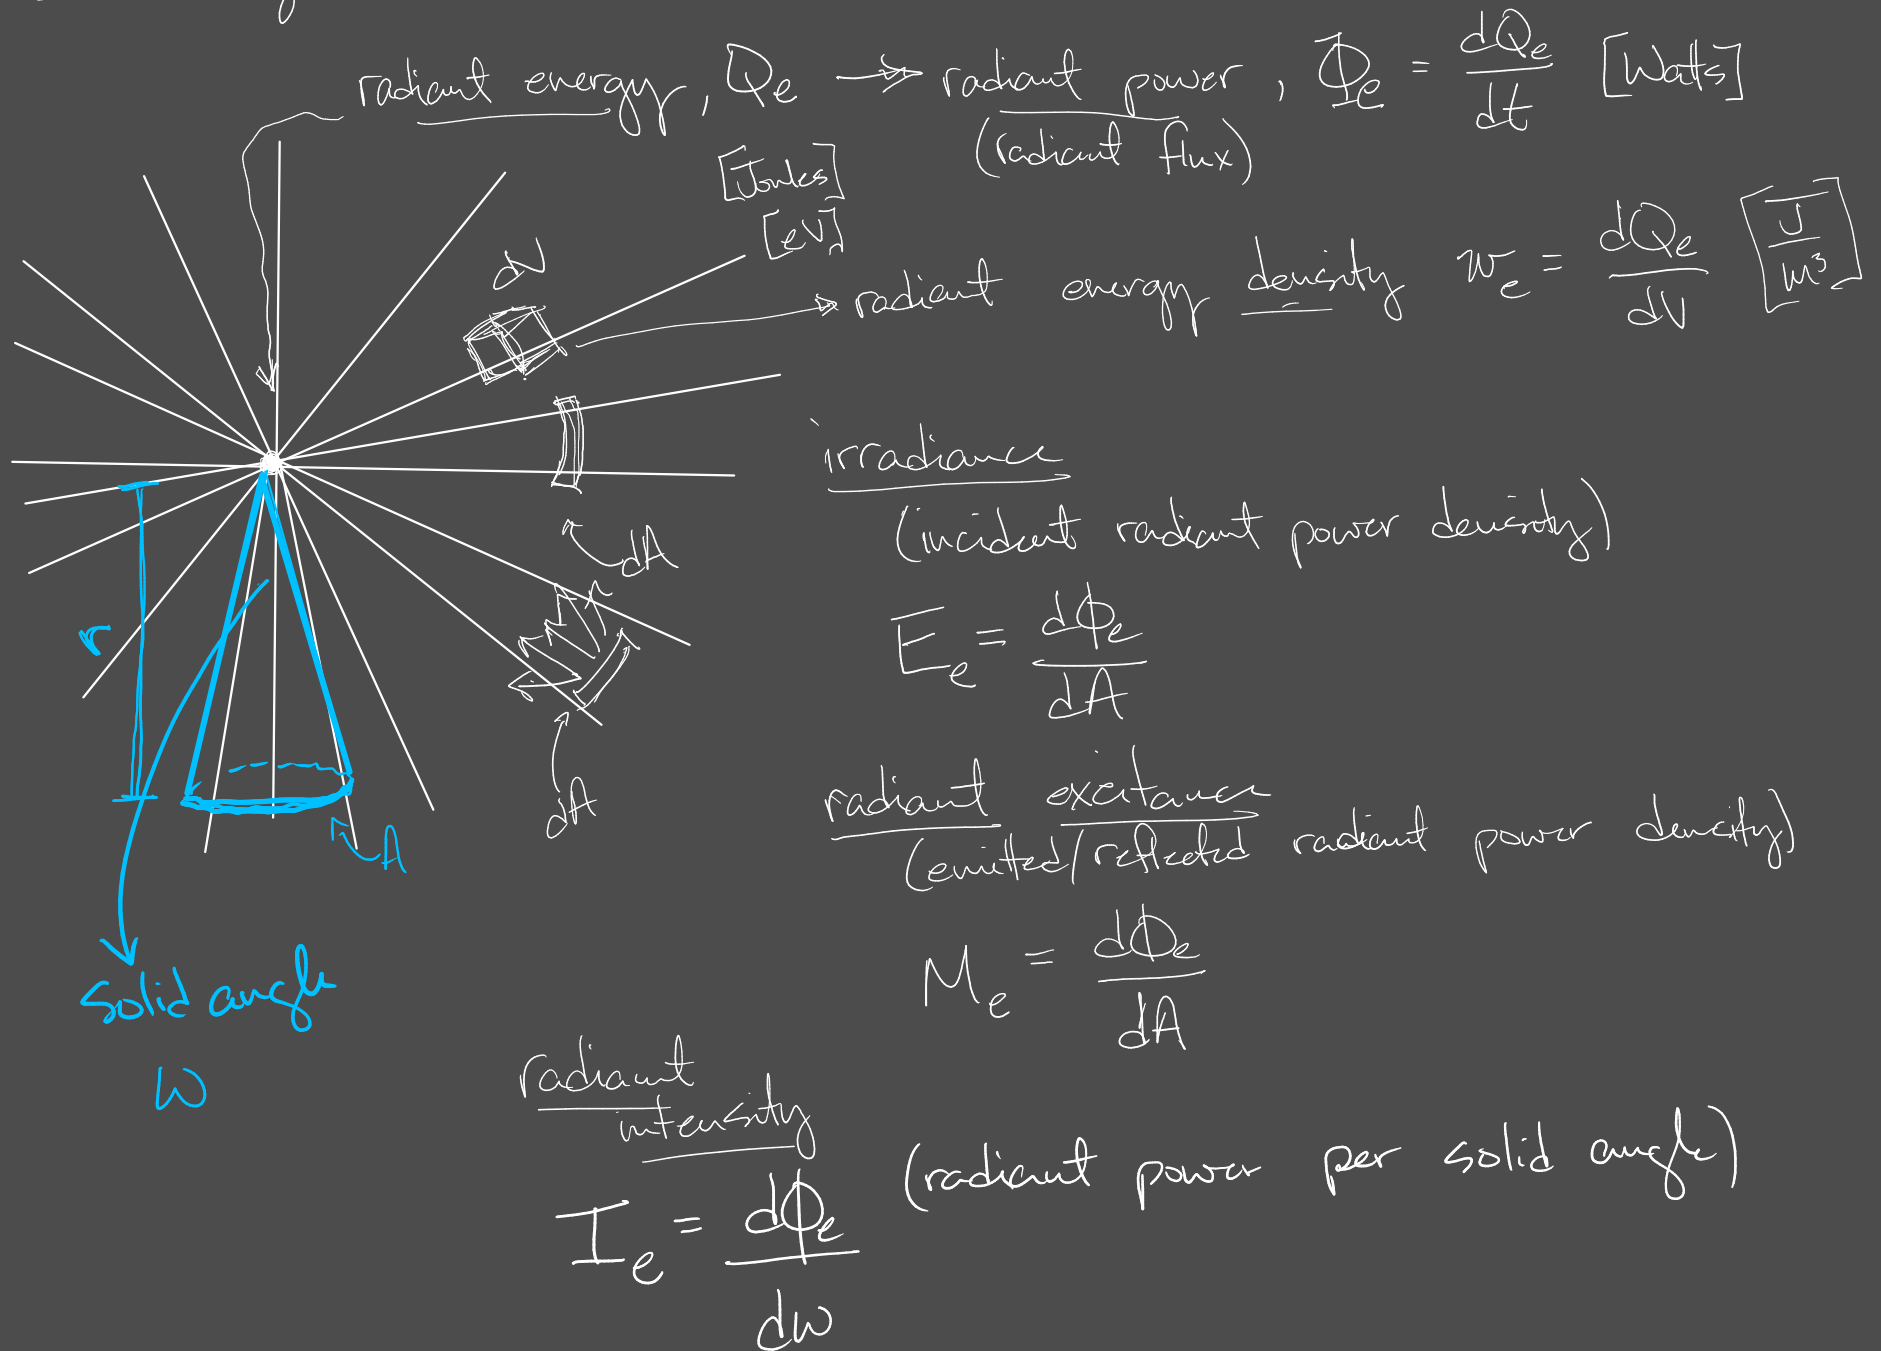 radiant energy, Qe → radiant power, Φe = dQe/dt [Watts]
(radiant flux)
[Joules]
[eV]
dV
→ radiant energy density we = dQe/dV [J/m³]
irradiance
(incident radiant power density)
dA
Ee = dϕe/dA
r
dA
A
radiant exitance
(emitted/reflected radiant power density)
Me = dΦe/dA
solid angle
ω
radiant
intensity
(radiant power per solid angle)
Ie = dϕe/dω